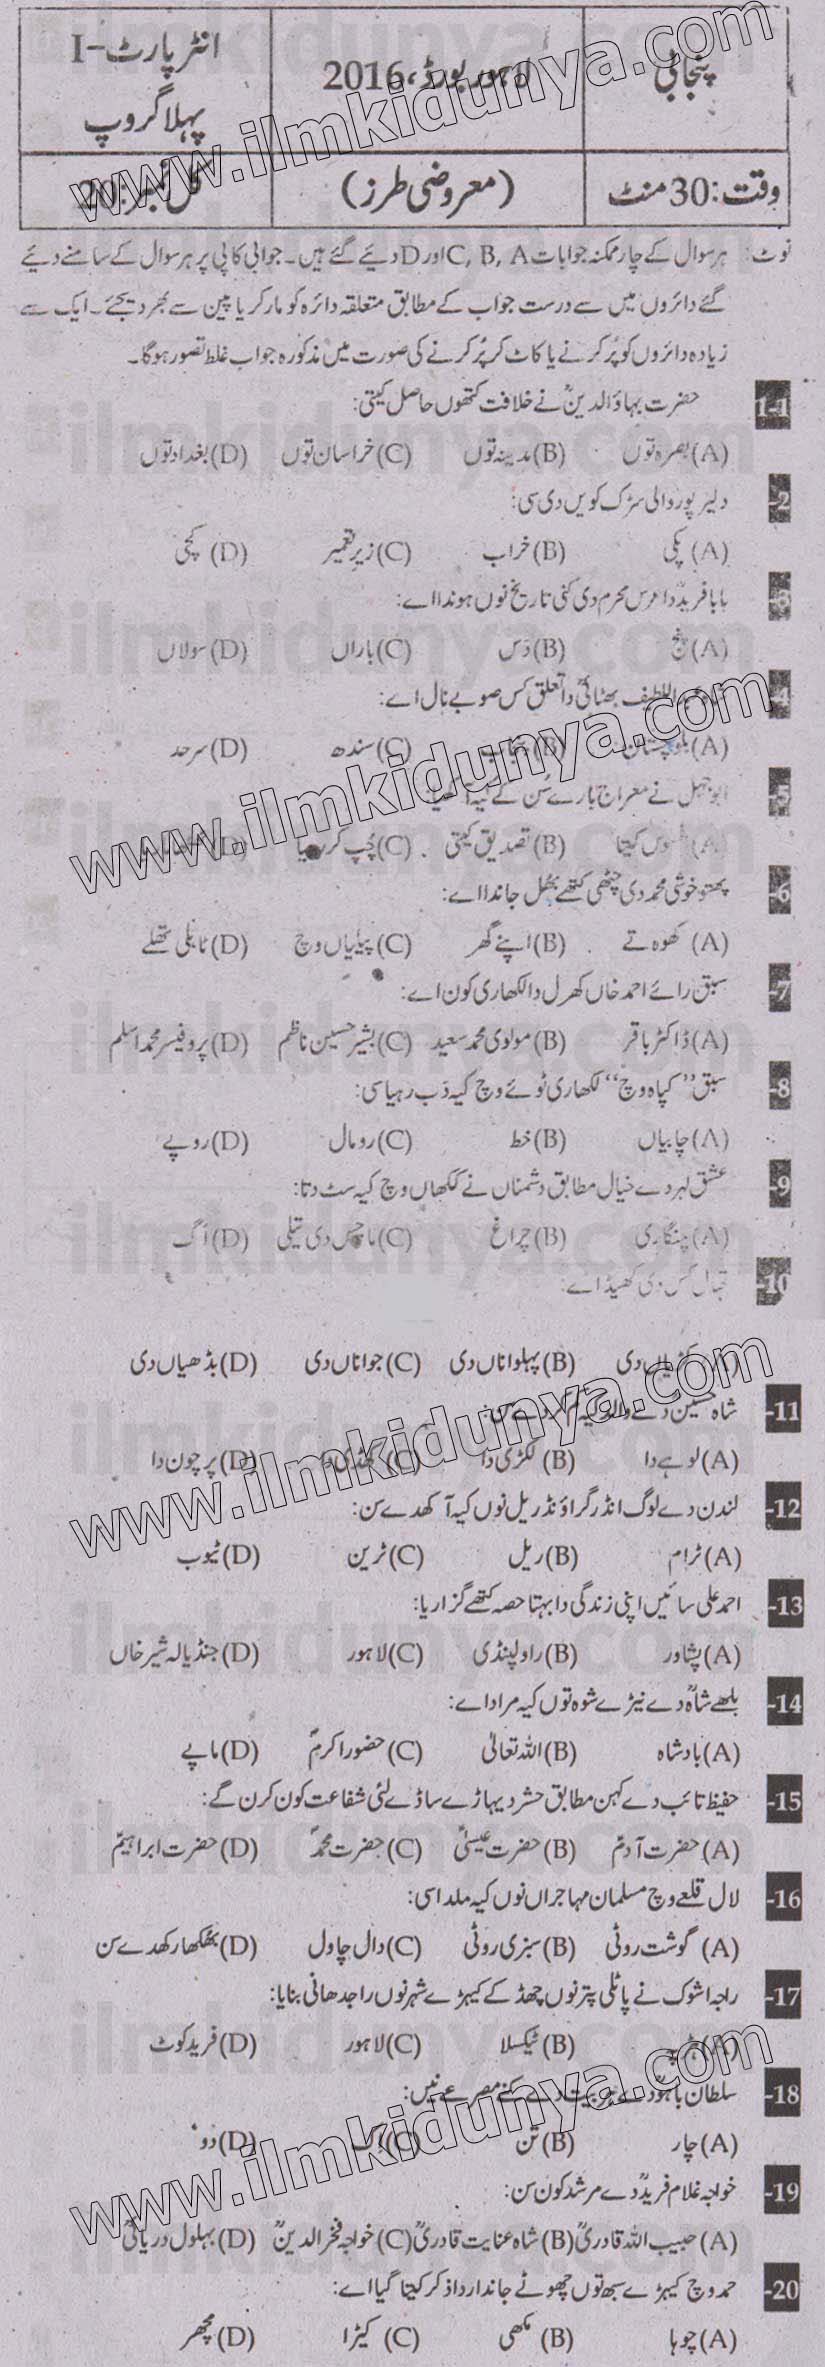 پنجابی
لاہور بورڈ، 2016
انٹر پارٹ-I
پہلا گروپ
وقت: 30 منٹ
(معروضی طرز)
کل نمبر: 20
نوٹ: ہر سوال کے چار ممکنہ جوابات C, B, A اور D دیئے گئے ہیں۔ جوابی کاپی پر ہر سوال کے سامنے دیئے
گئے دائروں میں سے درست جواب کے مطابق متعلقہ دائرہ کو مارکر یا پین سے بھر دیجئے۔ ایک سے
زیادہ دائروں کو پُر کرنے یا کاٹ کر پُر کرنے کی صورت میں مذکورہ جواب غلط تصور ہوگا۔
1-1 حضرت بہاؤ الدینؒ نے خلافت کتھوں حاصل کیتی:
(A) بصرہ توں (B) مدینہ توں (C) خراسان توں (D) بغداد توں
2- دلیر پور والی سڑک کویں دی سی:
(A) پکی (B) خراب (C) زیر تعمیر (D) کچی
3- بابا فریدؒ دا عرس محرم دی کنی تاریخ نوں ہوندا اے:
(A) پنج (B) دس (C) باراں (D) سولاں
4- عبداللطیف بھٹائیؒ دا تعلق کس صوبے نال اے:
(A) بلوچستان (B) پنجاب (C) سندھ (D) سرحد
5- ابوجہل نے معراج بارے سُن کے کیہ آکھیا:
(A) افسوس کیتا (B) تصدیق کیتی (C) چُپ کر رہیا (D)
6- پھتو خوشی محمد دی چٹھی کتھے بھُل جاندا اے:
(A) کھوہ تے (B) اپنے گھر (C) پیلیاں وچ (D) ٹاہلی تھلے
7- سبق رائے احمد خاں کھرل دا لکھاری کون اے:
(A) ڈاکٹر باقر (B) مولوی محمد سعید (C) بشیر حسین ناظم (D) پروفیسر محمد اسلم
8- سبق ”کپاہ وچ“ لکھاری ٹوئے وچ کیہ دَب رہیا سی:
(A) چابیاں (B) خط (C) رومال (D) روپے
9- عشق لہر دے خیال مطابق دشمناں نے ککھاں وچ کیہ سٹ دتا:
(A) چنگاری (B) چراغ (C) ماچس دی تیلی (D) اگ
10- کس دی کھیڈ اے:
(A) کڑیاں دی (B) پہلواناں دی (C) جواناں دی (D) بڈھیاں دی
11- شاہ حسین دے والد کیہ کم کردے سن:
(A) لوہے دا (B) لکڑی دا (C) کھڈی دا (D) پرچون دا
12- لندن دے لوگ انڈر گراؤنڈ ریل نوں کیہ آکھدے سن:
(A) ٹرام (B) ریل (C) ٹرین (D) ٹیوب
13- احمد علی سائیں اپنی زندگی دا بہتا حصہ کتھے گزاریا:
(A) پشاور (B) راولپنڈی (C) لاہور (D) جنڈیالہ شیر خاں
14- بلھے شاہؒ دے نیڑے شوہ توں کیہ مراد اے:
(A) بادشاہ (B) اللہ تعالیٰ (C) حضور اکرمؐ (D) ماپے
15- حفیظ تائب دے کہن مطابق حشر دیہاڑے ساڈے لئی شفاعت کون کرن گے:
(A) حضرت آدمؑ (B) حضرت عیسیٰؑ (C) حضرت محمدؐ (D) حضرت ابراہیمؑ
16- لال قلعے وچ مسلمان مہاجراں نوں کیہ ملدا سی:
(A) گوشت روٹی (B) سبزی روٹی (C) دال چاول (D) بھکھا رکھدے سن
17- راجہ اشوک نے پاٹلی پتر نوں چھڈ کے کیہڑے شہر نوں راجدھانی بنایا:
(A) ہڑپہ (B) ٹیکسلا (C) لاہور (D) فرید کوٹ
18- سلطان باہوؒ دے ہر بیت دے کنے مصرعے نیں:
(A) چار (B) تن (C) اک (D) دو
19- خواجہ غلام فریدؒ دے مرشد کون سن:
(A) حبیب اللہ قادریؒ (B) شاہ عنایت قادریؒ (C) خواجہ فخر الدینؒ (D) بہلول دریائیؒ
20- حمد وچ کیہڑے سبھ توں چھوٹے جاندار دا ذکر کیتا گیا اے:
(A) چوہا (B) مکھی (C) کیڑا (D) مچھر
www.ilmkidunya.com
www.ilmkidunya.com
www.ilmkidunya.com
www.ilmkidunya.com